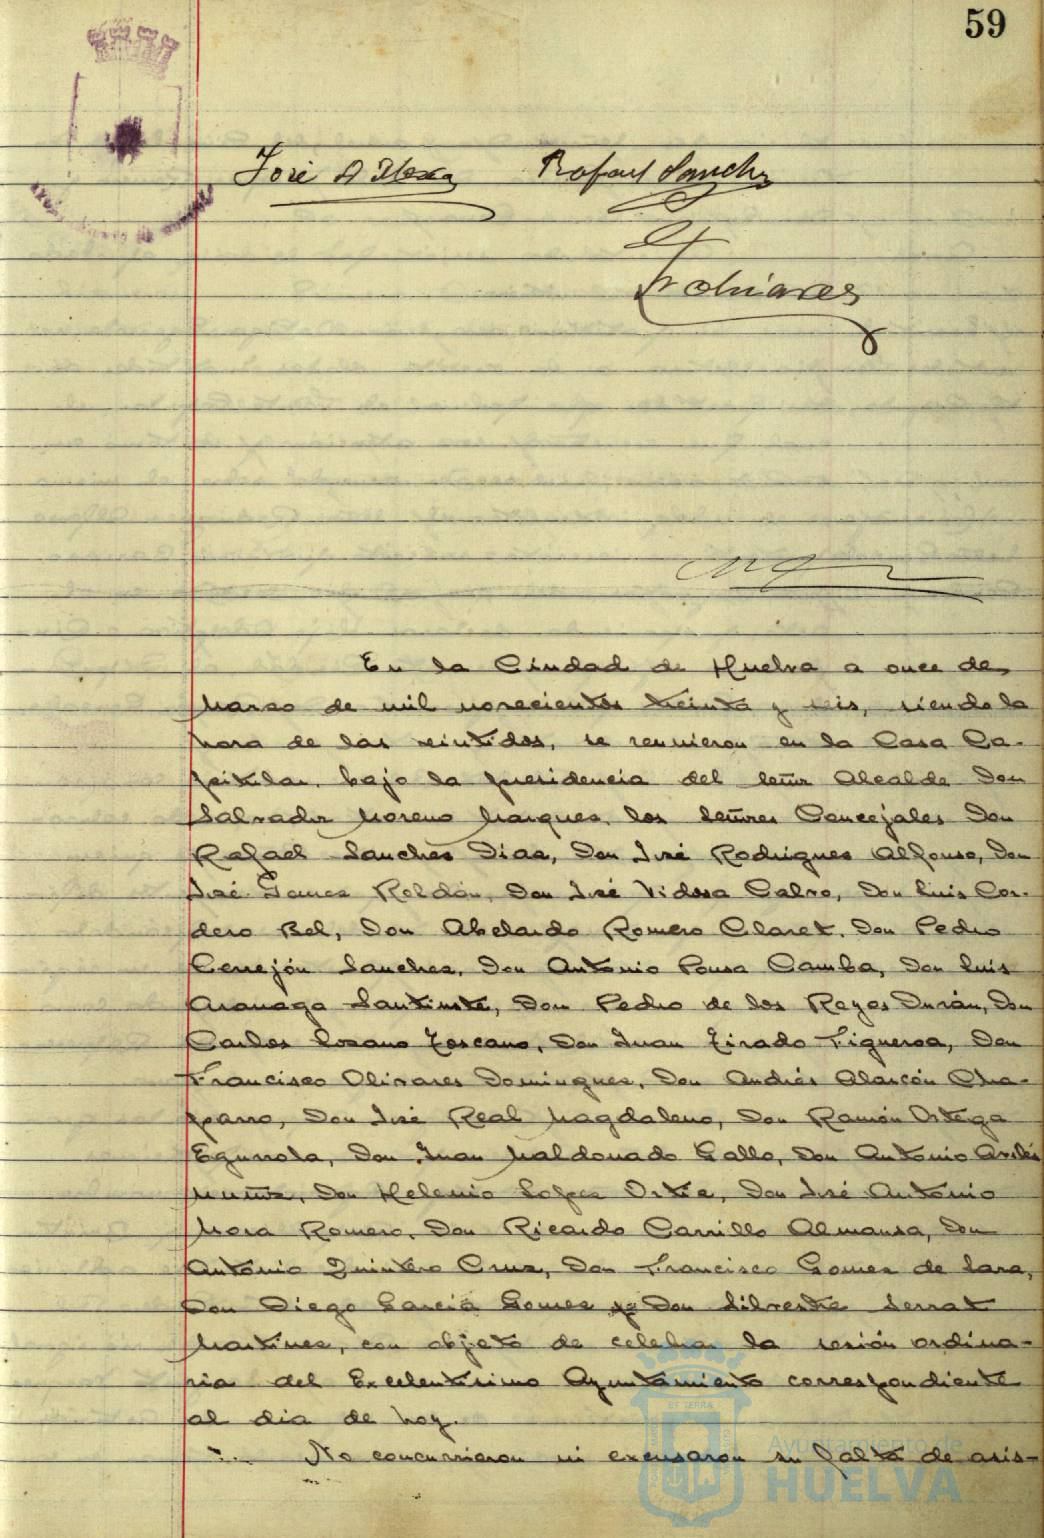 59
José A
Rafael Sanchez
Fr Olivares
En la Ciudad de Huelva a once de
Marzo de mil novecientos treinta y seis, siendo la
hora de las veintidos, se reunieron en la Casa Ca-
pitular, bajo la presidencia del señor Alcalde Don
Salvador Moreno Marquez, los señores Concejales Don
Rafael Sanchez Diaz, Don José Rodriguez Alfonso, Don
José Gomez Roldán, Don José Vidosa Calvo, Don Luis Cor-
dero Bel, Don Abelardo Romero Claret, Don Pedro
Cerrejón Sanchez, Don Antonio Pousa Camba, Don Luis
Aranaga Santiuste, Don Pedro de los Reyes Durán, Don
Carlos Lozano Toscano, Don Juan Tirado Figueroa, Don
Francisco Olivares Dominguez, Don Andrés Alarcón Cha-
parro, Don José Real Magdaleno, Don Ramón Ortega
Egurrola, Don Juan Maldonado Gallo, Don Antonio
Muñoz, Don Helenio Lopez Ortiz, Don José Antonio
Mora Romero, Don Ricardo Carrillo Almansa, Don
Antonio Quintero Cruz, Don Francisco Gomez de Lara,
Don Diego Garcia Gomez y Don Silvestre Serrat
Martinez, con objeto de celebrar la sesión ordina-
ria del Excelentisimo Ayuntamiento correspondiente
al dia de hoy.
No concurrieron ni excusaron su falta de asis-
Ayuntamiento de
HUELVA